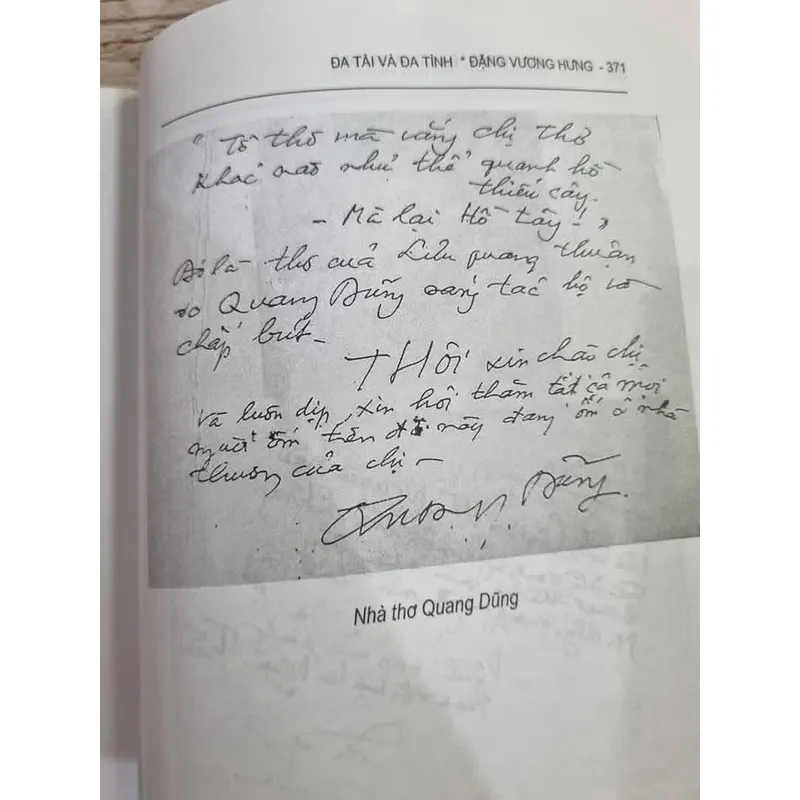 ĐA TÀI VÀ ĐA TÌNH * ĐẶNG VƯƠNG HƯNG - 371
"Tổ thơ mà vắng chị thơ
Khác nào như thể quanh hồ
thiếu cây.
- Mà lại Hồ Tây! "
Đó là thơ của Lưu quang Thuận
do Quang Dũng sáng tác hộ và
chấp bút -
THÔI xin chào chị
và luôn dịp, xin hỏi thăm tất cả mọi
người ốm trên đời này đang ốm ở nhà
thương của chị -
Quang Dũng.
Nhà thơ Quang Dũng